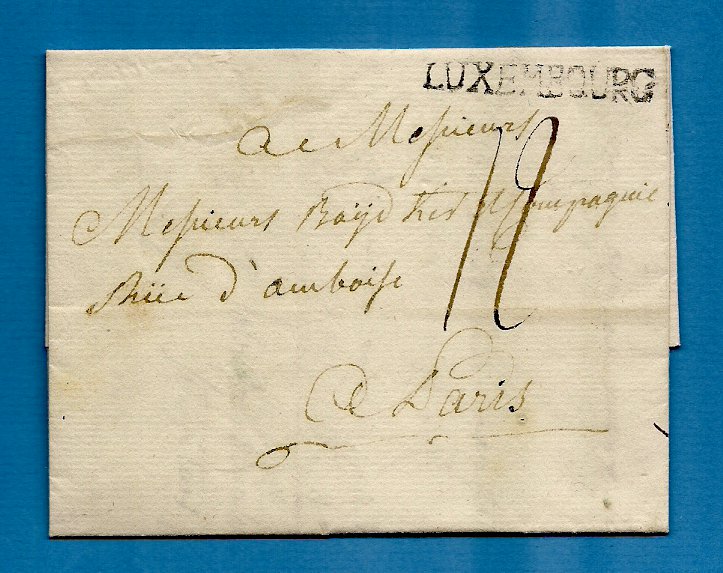 LUXEMBOURG
a Messieurs
Messieurs Boÿd Ker & Compagnie
Rüe d'amboise
12
a Paris